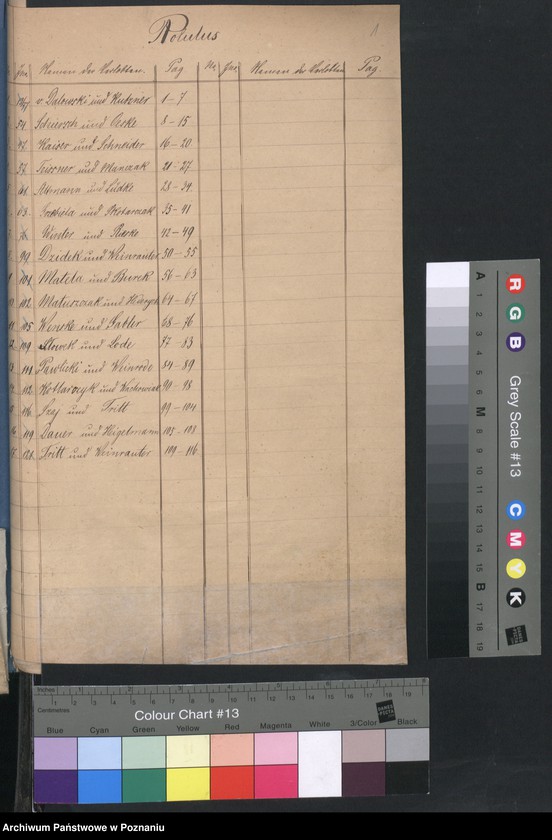 Rotulus
1
Jou. Namen der Verlobten. Pag Nr. Jou. Namen der Verlobten Pag.
v. Dalewski und Kutzner 1-7
54. Schiersch und Oeske 8-15
Kaiser und Schneider 16-20
57. Teissner und Manczak 21-27
61. Altmann und Lüdke 28-34
63. und 35-41
und Rieske 42-49
99 Dzidek und Weinrauter 50-55
101 Matela und Burek 56-63
102 Matuszczak und 64-67
105 Wenske und Gabler 68-76
109 und Lode 77-83
111 Pawlicki und Weinrode 84-89
112 Kotlarczyk und 90-98
116 und Tritt 99-104
119 Dauer und Higelmann 105-108
Tritt und Weinrauter 109-116
A 1 2 3 4 5 6 M 8 9 10 11 12 13 14 15 B 17 18 19
R G B Grey Scale #13 C M Y K
DANES PICTA
Inches 1 2 3 4 5 6 7 8
Centimetres 1 2 3 4 5 6 7 8 9 10 11 12 13 14 15 16 17 18 19
Colour Chart #13
DANES PICTA
Blue Cyan Green Yellow Red Magenta White 3/Color Black
Archiwum Państwowe w Poznaniu